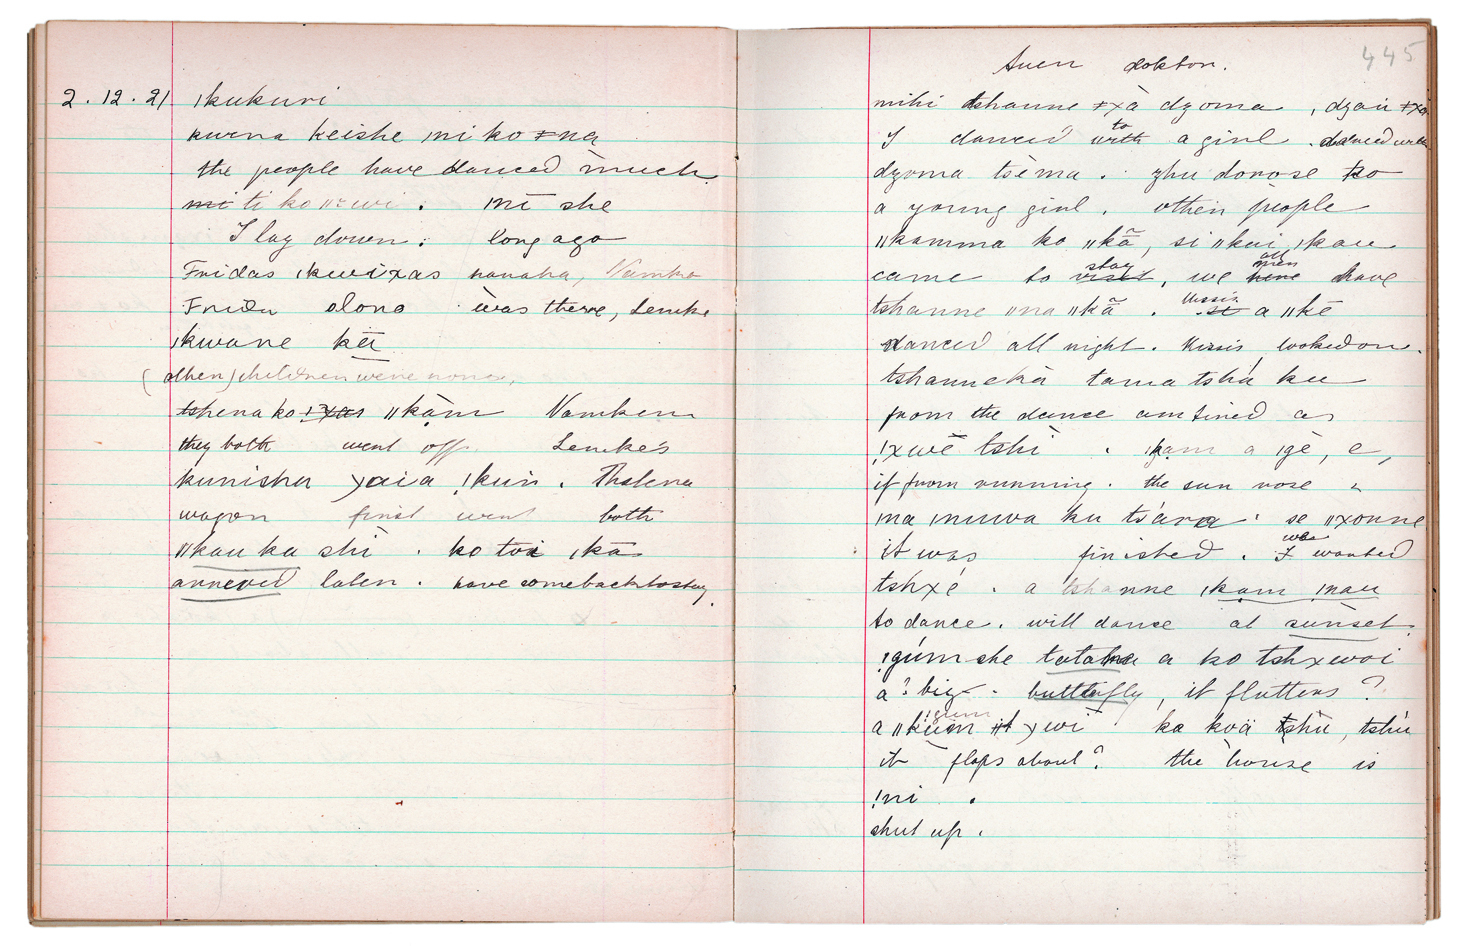 2.12.21 ǀkukuri
kurna keishe ǀni ko ǂna
the people have danced much.
ti ko. ǀnī she
I lay down. long ago
Fridas ǀkwiχas nanaha, Namka
Frieda alone was there, Lemke
ǀkwane kā
(other) children were none,
tshena ko ǁkạm Namken
they both went off Lemke's
kunisha χaia ǃkun. Thalena
wagon first went both
ǁkau ka shi. ko toi ǀkā
arrived later. have come back to stay.
445
Auen doktor.
mihi tshanne ǂχā dzoma, dzau ǂχā
I danced to a girl. danced with
dzoma tsēma. zhu dorose ko
a young girl. other people
ǁkamma ko ǁkã, si ǁkui ǀkau
came to stay, we all men have
tshanne ǁna ǁkã. Missis a ǁkē
danced all night. Missis looked on.
tshannekā tama tshá ku
from the dance am tired as
ǃχwē tshi. ǀkam a ǀgē, e,
if from running. the sun rose "
ma ǀnuwa ku tsara. se ǁχonne
it was finished. was I wanted
tshχé. a tshanne ǀkam ǃnau
to dance. will dance at sunset.
ǃgúm she tatabba a ko tshχwoi
a? big. butterfly, it flutters?
a ǁkum ǃgum χwi ka koä tshu, tshu
it flaps about? the house is
ǃni.
shut up.